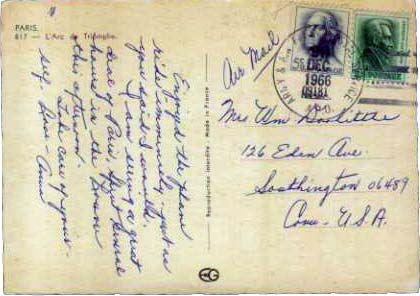 PARIS.
817 - L'Arc de Triomphe.
Enjoyed the plane
ride immensely - just as
you said I would.
I am seeing a great
deal of Paris.
house in the
this afternoon.
Take care of your-
self. Love - Ann
Reproduction interdite - Made in France
EG
Air Mail
ARMY & A
DEC
1966
APO
Mrs Wm Doolittle
126 Eden Ave.
Southington 06489
Conn - U.S.A.